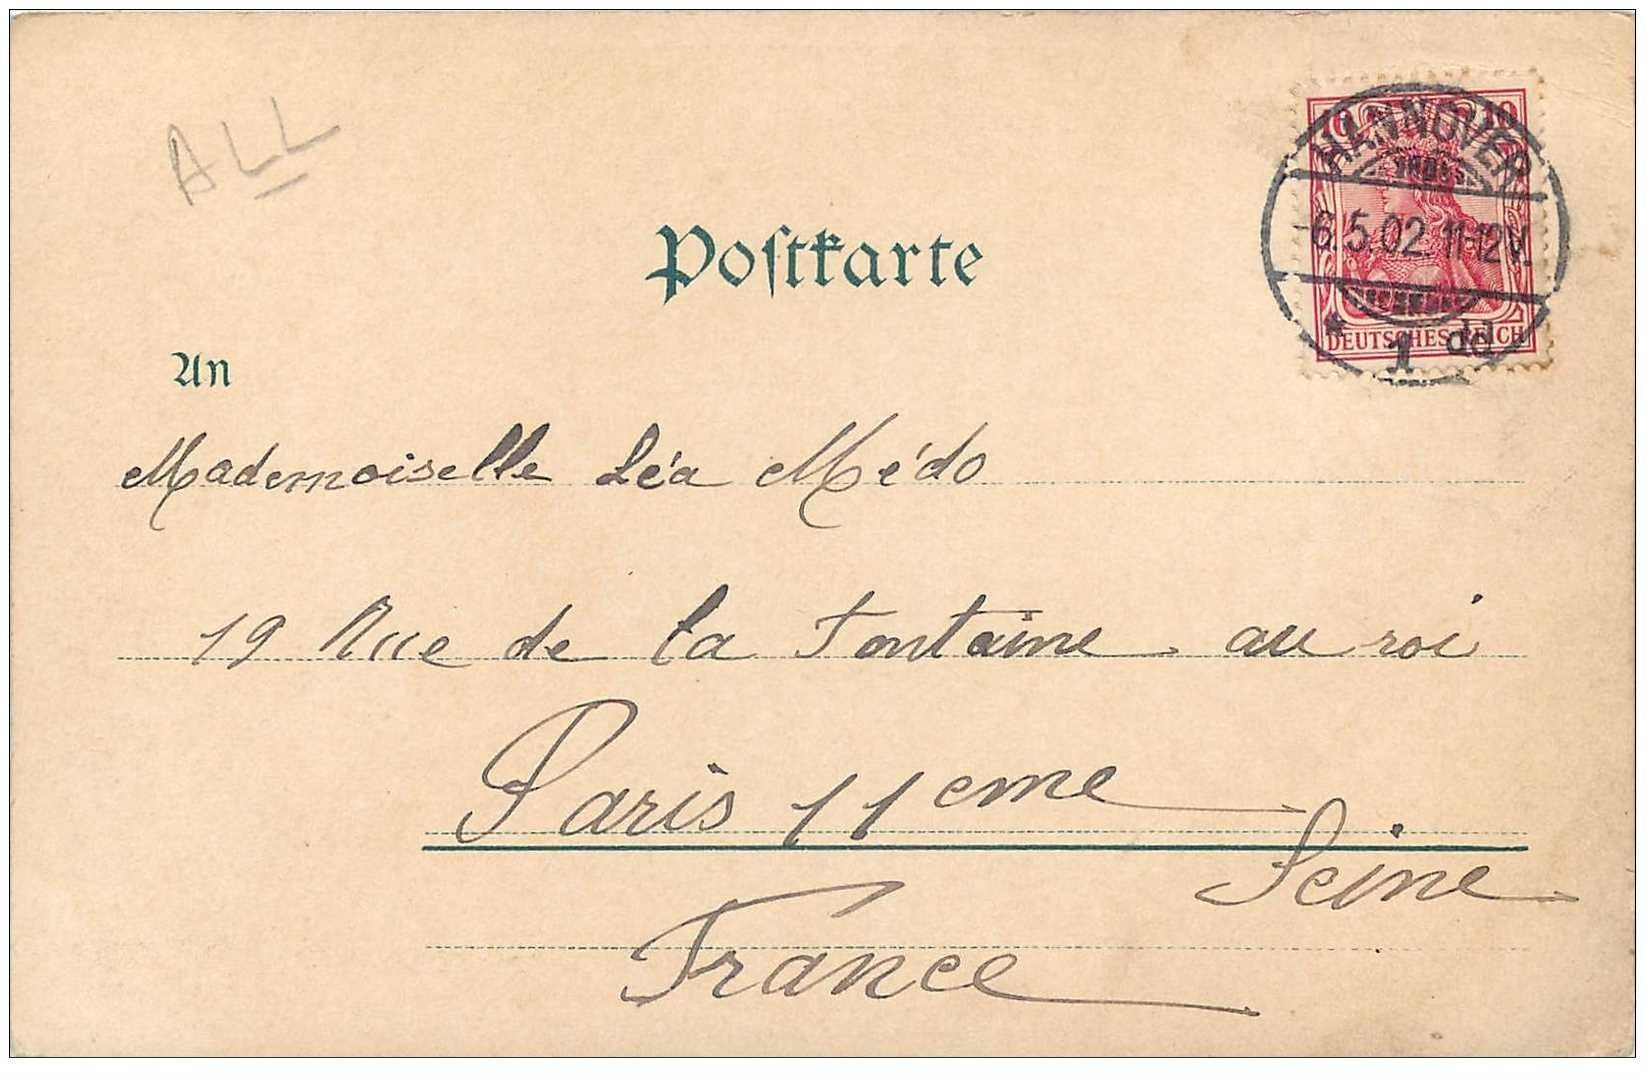 ALL
Postkarte
10 10
HANNOVER
-6.5.02.11-12V.
* 1 dd
DEUTSCHES REICH
An
Mademoiselle Léa Médo
19 Rue de la Fontaine au roi
Paris 11eme
Seine
France